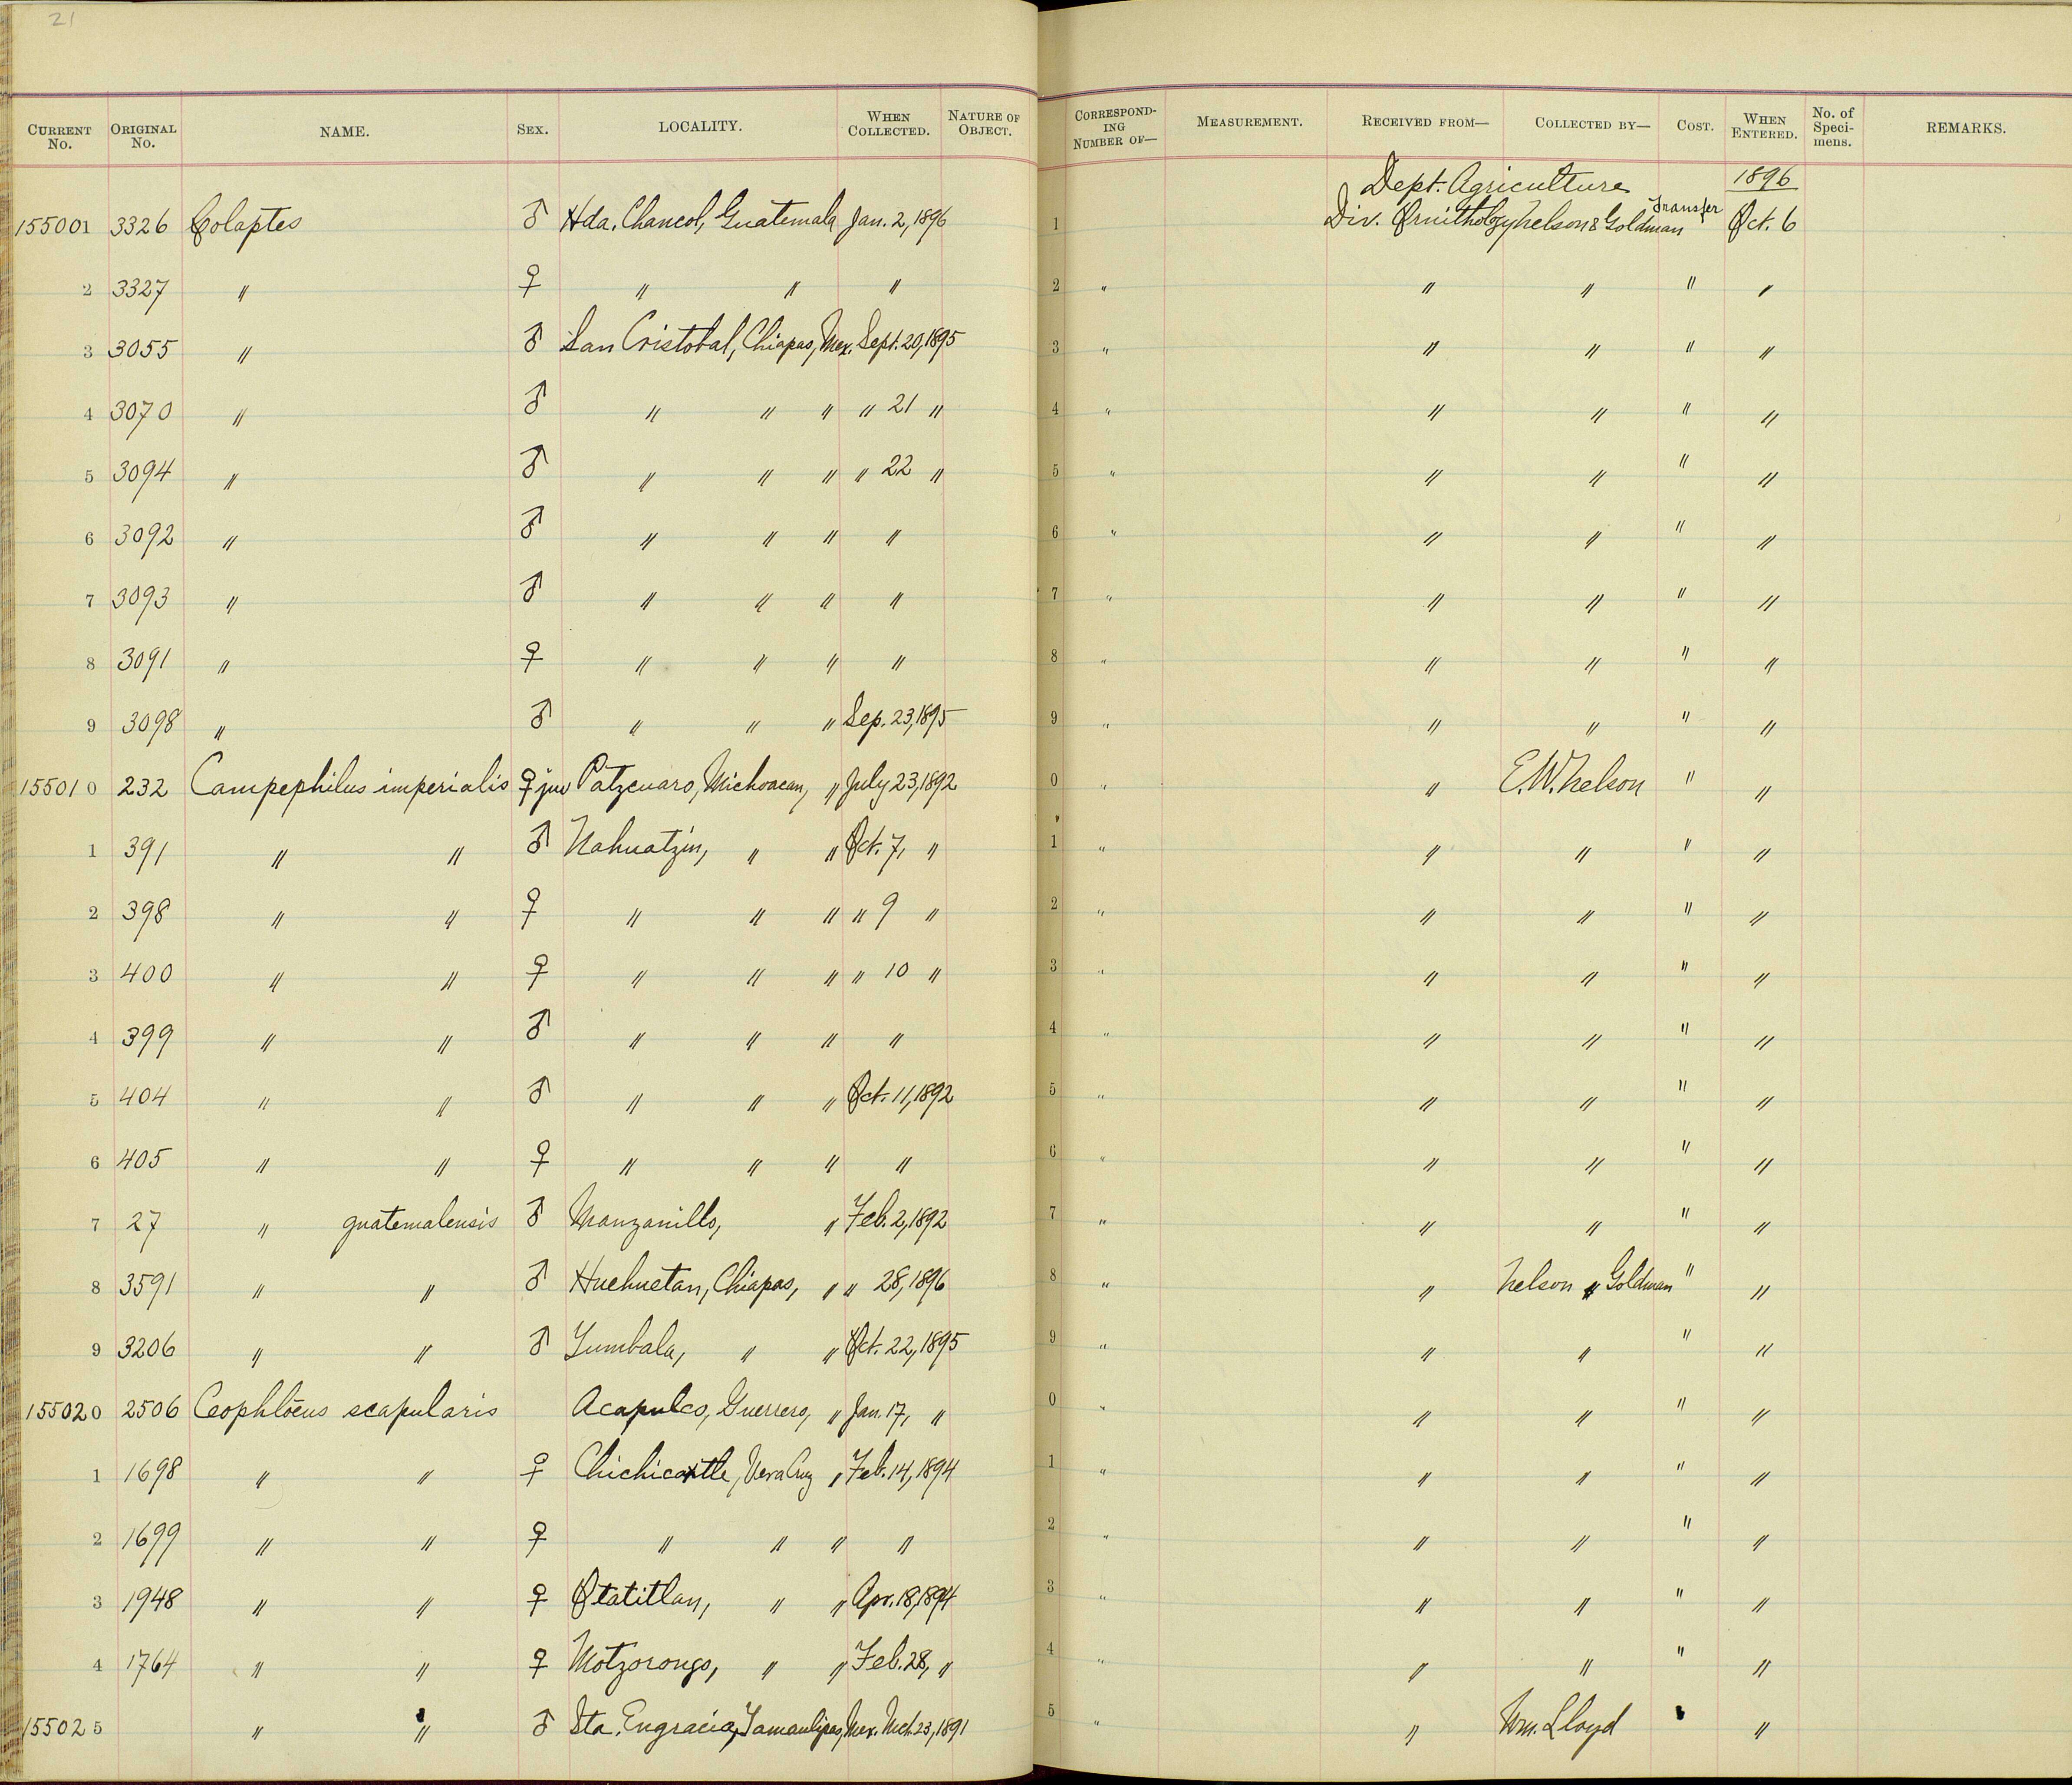 21
CURRENT No. ORIGINAL No. NAME. SEX. LOCALITY. WHEN COLLECTED. NATURE OF OBJECT. CORRESPONDING NUMBER OF— MEASUREMENT. RECEIVED FROM— COLLECTED BY— COST. WHEN ENTERED. No. of Specimens. REMARKS.
Dept. Agriculture 1896
155001 3326 Colaptes ♂ Hda. Chancol, Guatemala Jan. 2, 1896 1 Div. Ornithology Nelson & Goldman Transfer Oct. 6
2 3327 " ♀ " " " 2 " " " " "
3 3055 " ♂ San Cristobal, Chiapas, Mex. Sept. 20, 1895 3 " " " " "
4 3070 " ♂ " " " " 21 " 4 " " " " "
5 3094 " ♂ " " " " 22 " 5 " " " " "
6 3092 " ♂ " " " " 6 " " " " "
7 3093 " ♂ " " " " 7 " " " " "
8 3091 " ♀ " " " " 8 " " " " "
9 3098 " ♂ " " " Sep. 23, 1895 9 " " " " "
155010 232 Campephilus imperialis ♀ juv Patzcuaro, Michoacan, " July 23, 1892 0 " " E.W. Nelson " "
1 391 " " ♂ Nahuatzin, " " Oct. 7, " 1 " " " " "
2 398 " " ♀ " " " " 9 " 2 " " " " "
3 400 " " ♀ " " " " 10 " 3 " " " " "
4 399 " " ♂ " " " " 4 " " " " "
5 404 " " ♂ " " " Oct. 11, 1892 5 " " " " "
6 405 " " ♀ " " " " 6 " " " " "
7 27 " guatemalensis ♂ Manzanillo, " Feb. 2, 1892 7 " " " " "
8 3591 " " ♂ Huehuetan, Chiapas, " " 28, 1896 8 " " Nelson " Goldman " "
9 3206 " " ♂ Yumbala, " " Oct. 22, 1895 9 " " " " "
155020 2506 Ceophlœus scapularis Acapulco, Guerrero, " Jan. 17, " 0 " " " " "
1 1698 " " ♀ Chichicaxtle, Vera Cruz " Feb. 14, 1894 1 " " " " "
2 1699 " " ♀ " " " " 2 " " " " "
3 1948 " " ♀ Otatitlan, " " Apr. 18, 1894 3 " " " " "
4 1764 " " ♀ Motzorongo, " " Feb. 28, " 4 " " " " "
155025 " " ♂ Sta. Engracia, Tamaulipas, Mex. Mch. 23, 1891 5 " " Wm. Lloyd " "